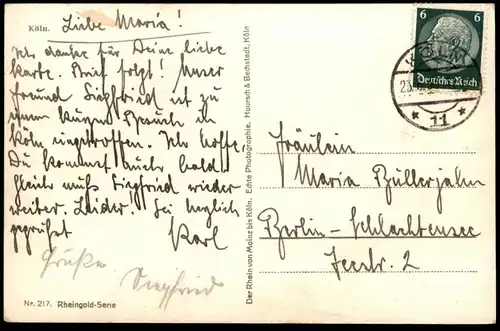 Köln.
Liebe Maria!
Ich danke für Deine liebe
Karte. Brief folgt! Unser
Freund Siegfried ist zu
einem kurzen Besuch in
Köln eingetroffen. Ich hoffe,
Du kommst auch bald
gleich muß Siegfried wieder
weiter. Leider! Sei herzlich
gegrüßt Karl
Grüße
Siegfried
Nr. 217. Rheingold-Serie
Der Rhein von Mainz bis Köln. Echte Photographie. Hoursch & Bechstedt, Köln
6 6
Deutsches Reich
KÖLN
11
Fräulein
Maria Büllerjahn
Berlin-Schlachtensee
Seestr. 2